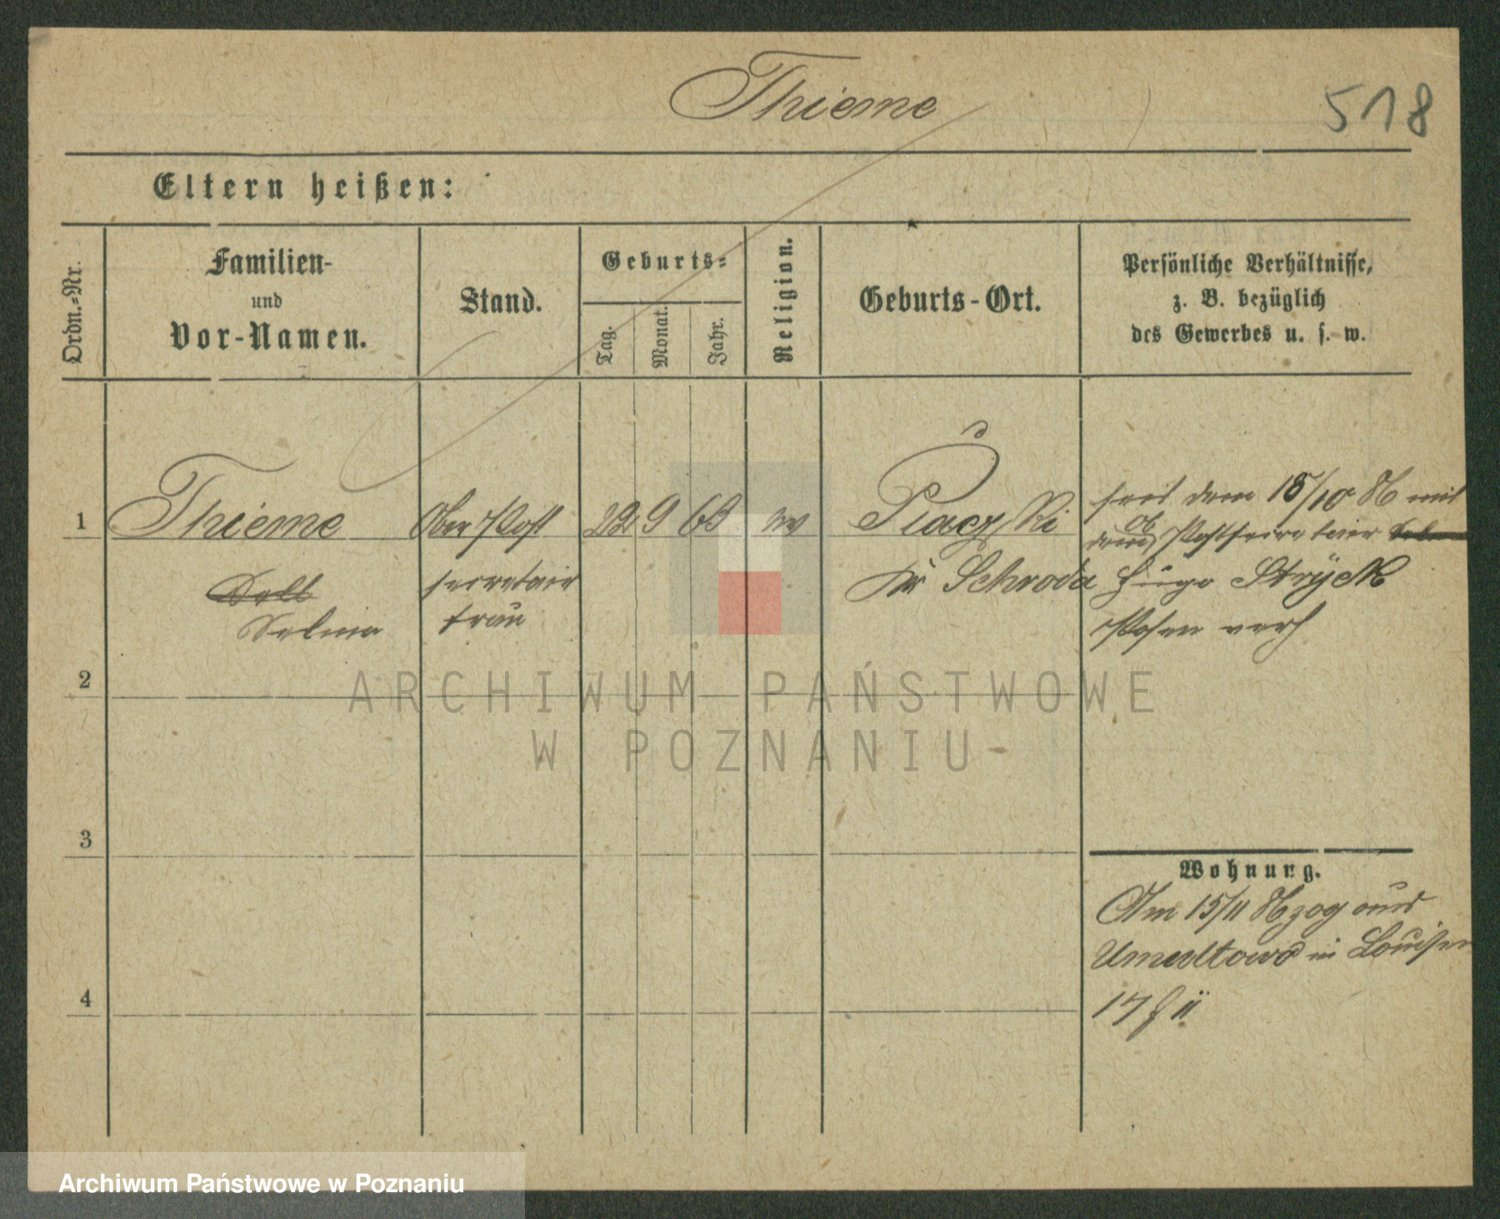 Thieme
518
Eltern heißen:
Ordn.-Nr.
Familien-
und
Vor-Namen.
Stand.
Geburts-
Tag.
Monat.
Jahr.
Religion.
Geburts-Ort.
Persönliche Verhältnisse,
z. B. bezüglich
des Gewerbes u. s. w.
1
Thieme
Selma
Ober Post
secretair
frau
22 9 63
Kr Schroda
seit dem 18/10 mit
dem Postsecretair
Hugo Stryck
Posen verh
2
3
4
Wohnung.
Am 15/11 aus
in Louisen
17
ARCHIWUM PAŃSTWOWE
W POZNANIU
Archiwum Państwowe w Poznaniu